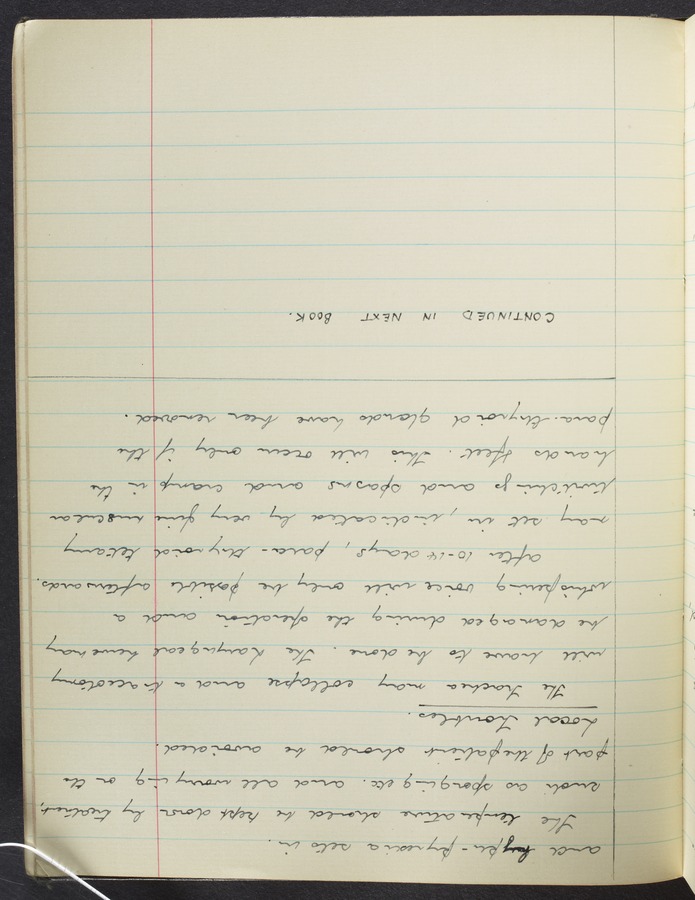 and hyper-pyrexia sets in.
The temperature should be kept down by
such as sponging etc. and all worrying on the
part of the patient should be avoided.
Local Troubles.
The Trachea may collapse and a traceotomy
will have to be done. The Laryngeal nerve may
be damaged during the operation and a
whispering voice will only be possible afterwards.
after 10-14 days, para-thyroid tetany
may set in, indicated by very fine muscular
twitchings and spasms and cramp in the
hands & feet. This will occur only if the
para-thyroid glands have been removed.
CONTINUED IN NEXT BOOK.